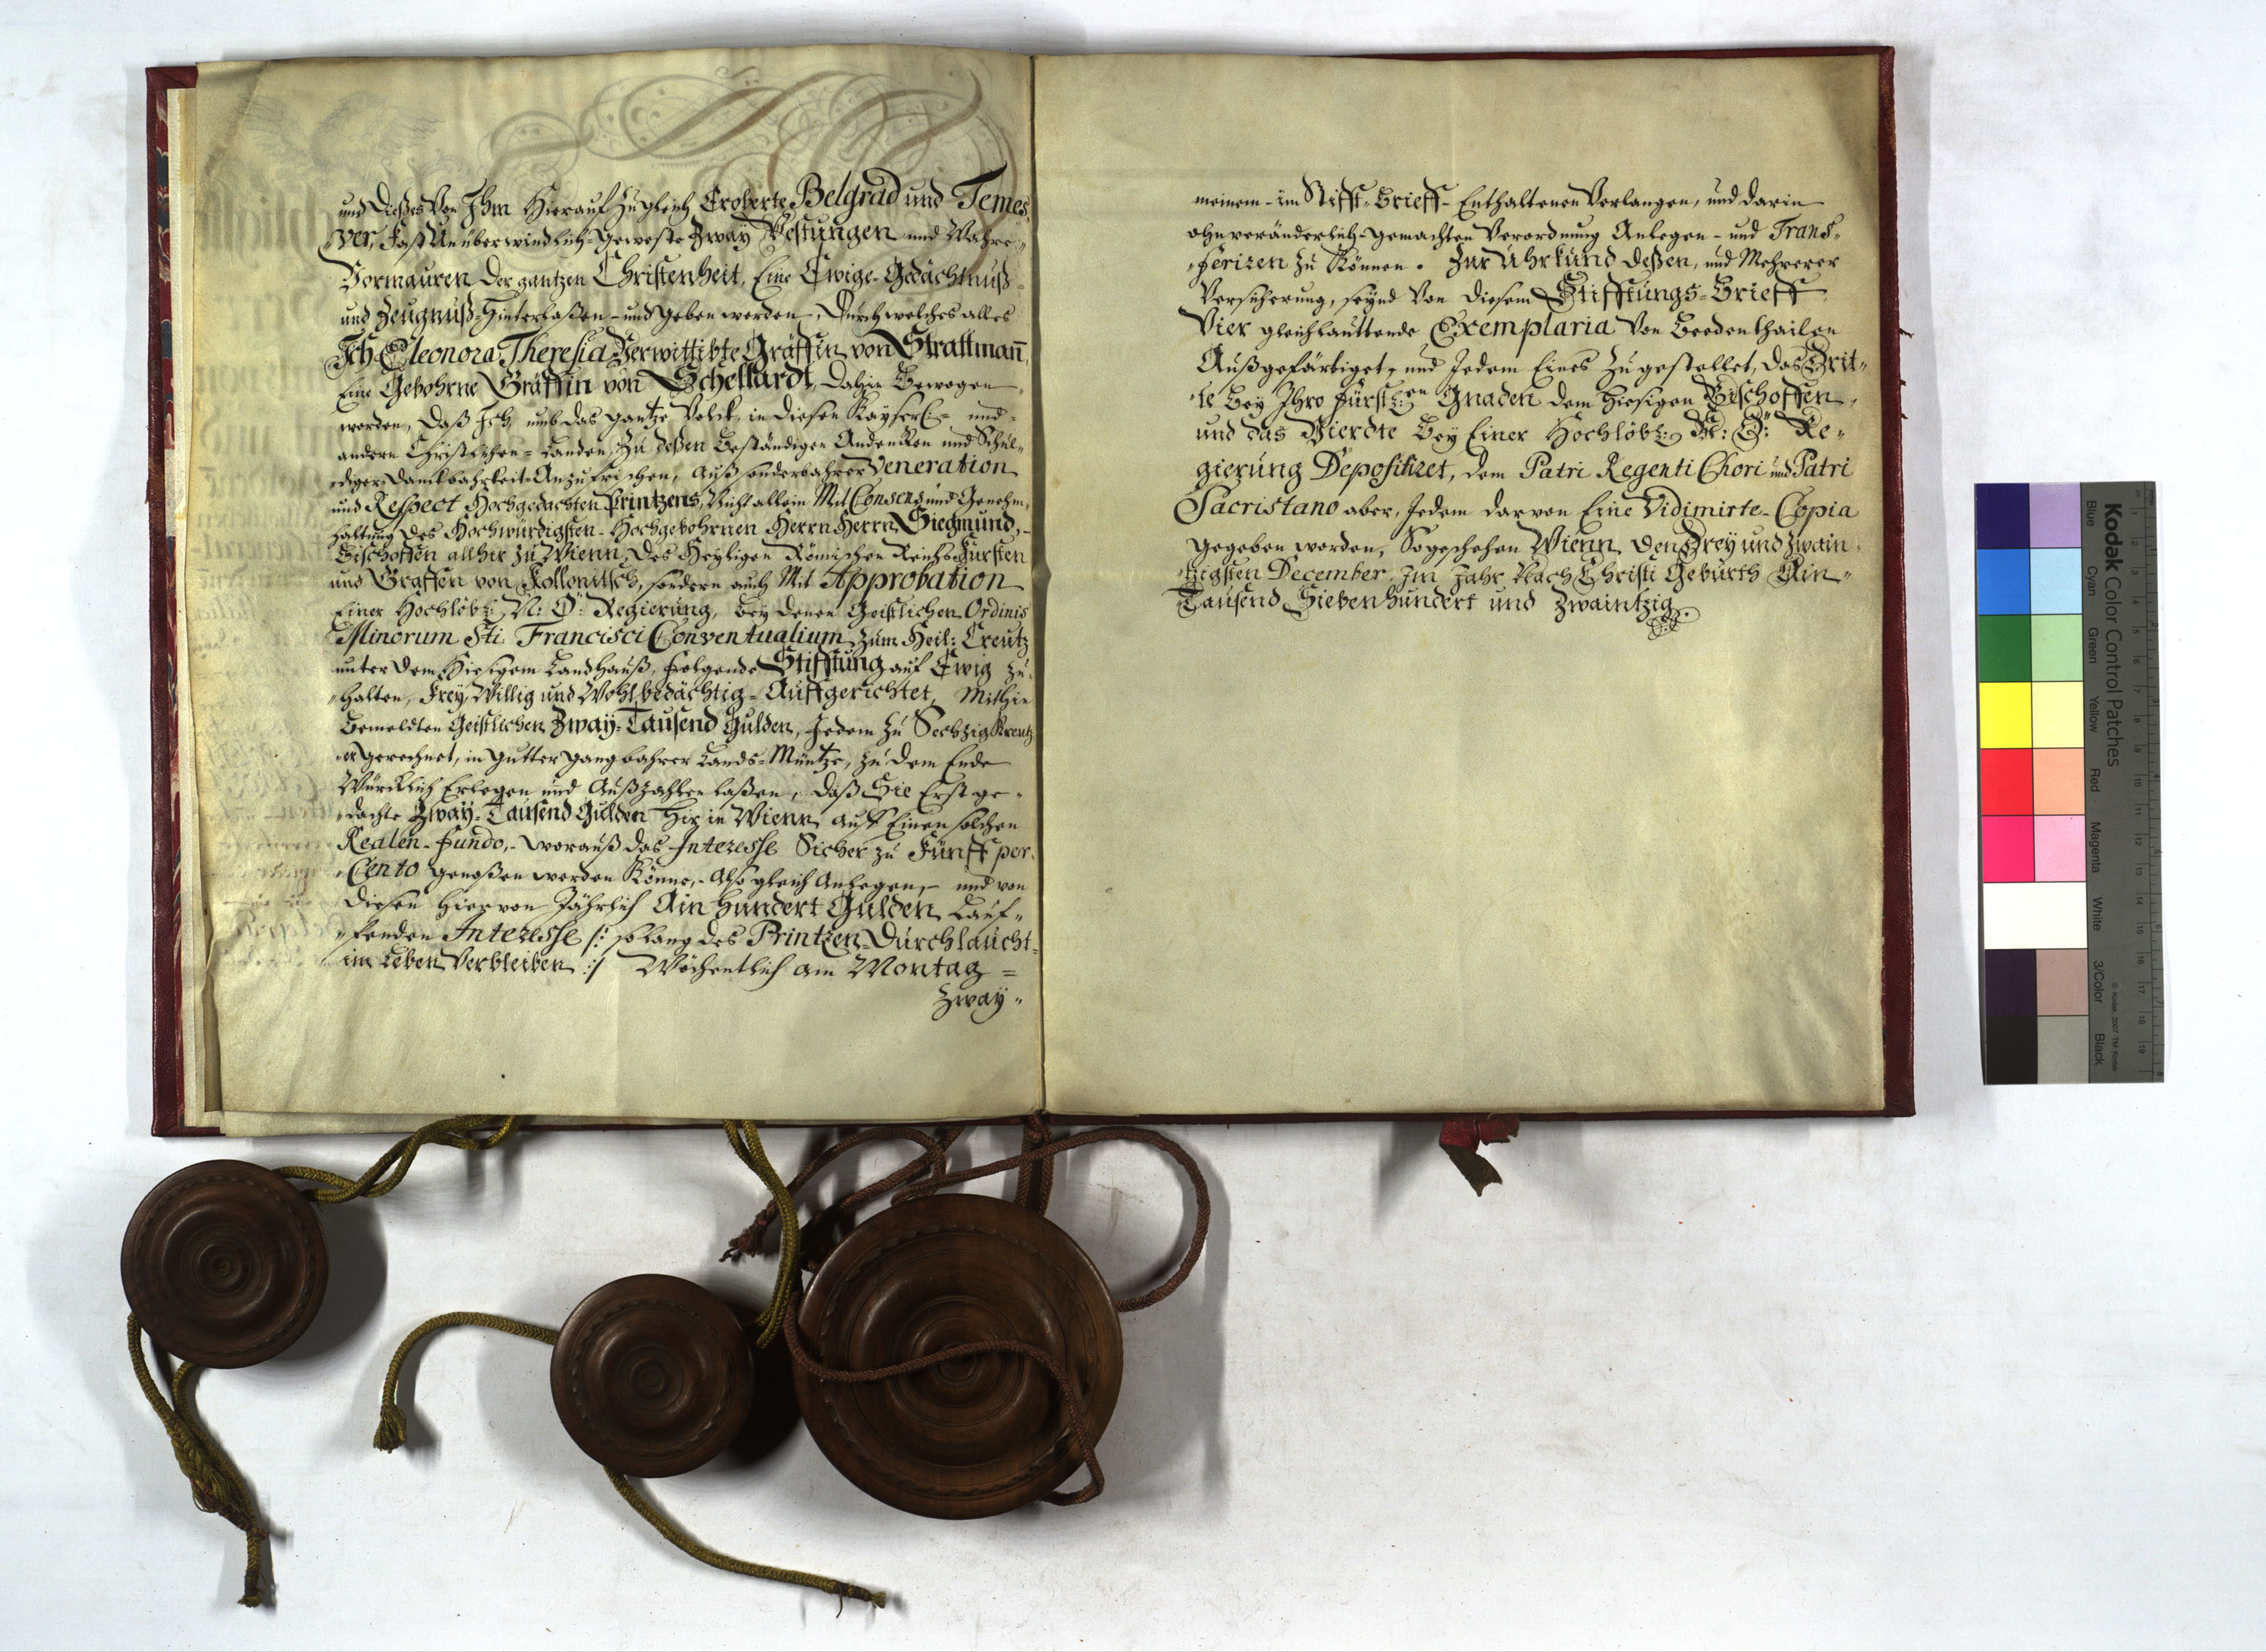 und dießes Von Ihm Hierauf zugleich Eroberte Belgrad und Temes„
„ver, Fast Unüberwindlich-geweste Zway Vestungen und Wahre„
Vormauren der gantzen Christenheit, Eine Ewige-Gedächtnuß
und Zeugnuß-Hinterlaßen-und geben werden, Durch welches alles
Ich Eleonora Theresia Verwittibte Gräffin von Strattmañ,
Eine Gebohrne Gräffin von Schellardt, dahin Bewogen
worden, Daß Ich, umb das gantze Volck, in diesen Kayserl: und
andern Christlichen-Landen, Zu deßen Beständigen Andencken und Schul„
„diger-Danckbahrkeit-Anzufrischen, Auß sonderbahrer Veneration
und Respect Hochgedachten Printzens, Nicht allein Mit Consens und Genehm„
haltung des Hochwürdigsten-Hochgebohrnen Herrn Herrn Siegmund,
Bischoffen allhir zu Wienn, des Heyligen Römischen Reichs Fürsten
und Graffen von Kollonitsch, sondern auch Mit Approbation
Einer Hochlöbl: N: Ö: Regierung, bey denen Geistlichen Ordinis
Minorum Sti. Francisci Conventualium zum Heil: Creutz
unter dem Hiesigem Landhauß, folgende Stifftung auf Ewig zu„
„halten, Frey, Willig und Wohlbedächtig-Auffgerichtet, Mithin
Bemeldten Geistlichen Zway-Tausend Gulden, Jedem zu Sechzig Kreutz
„er gerechnet, in gutter gangbahrer Lands-Müntze, zu dem Ende
Würcklich Erlegen und Außzahlen laßen, daß Sie Erstge„
„dachte Zway-Tausend Gulden Hir in Wienn, auff Einen solchen
Realen-Fundo,-worauß das Interesse Sicher zu Fünff per„
„Cento genoßen werden Könne,-Also gleich Anlegen,- und von
diesen Hiervon Jährlich Ain Hundert Gulden Lauf„
„fenden Interesse /: so lang des Printzen-Durchlaucht„
im Leben Verbleiben :/ Wöchentlich am Montag =
Zway„
meinem-im Stifft-Brieff-Enthaltenen Verlangen, und darin
ohnveränderlich-gemachten Verordnung Anlegen-und Trans„
„ferizen zu Können. Zur Uhrkund deßen, und Mehrerer
Versicherung, seynd Von diesem Stifftungs-Brieff
Vier gleichlauttende Exemplaria Von Beeden thailen
Außgefärtiget, und Jedem Eines Zugestellet, das Drit„
„te Bey Ihro Fürstl:en Gnaden dem Hiesigen Bischoffen,
und das Vierdte Bey Einer Hochlöbl: N: Ö: Re„
gierung Depositiret, dem Patri Regenti Chori und Patri
Sacristano aber, Jedem darvon Eine Vidimirte-Copia
gegeben worden, So geschehen Wienn, den Drey und Zwain„
„tzigsten December Im Jahr Nach Christi Gebürth Ain„
Tausend Siebenhundert und Zwaintzig.
Kodak Color Control Patches
© Kodak, 2007 TM: Kodak
Blue Cyan Green Yellow Red Magenta White 3/Color Black